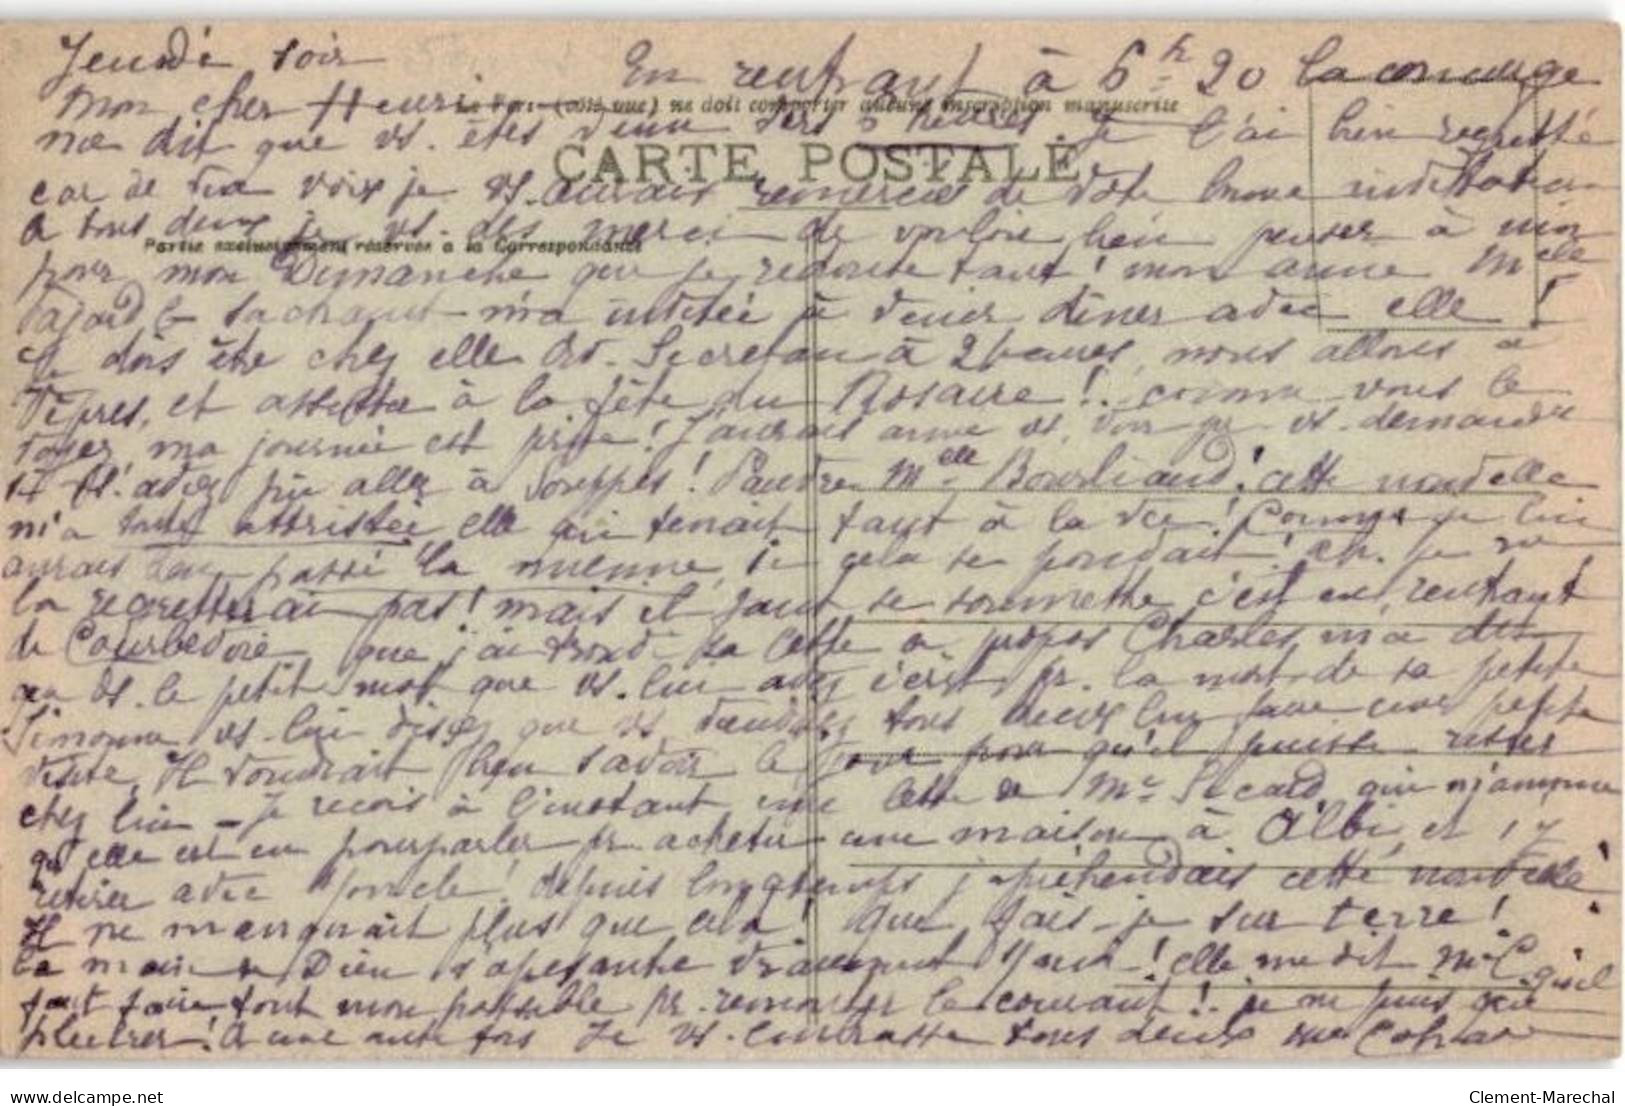 Jeudi soir En rentrant à 6h 20 la concierge
Mon cher Henri
me dit que vs. êtes venu vers 5 heures je l'ai bien regretté
CARTE POSTALE
car de vive voix je vs. aurais remerciés de votre bonne invitation
à tous deux je vs. dis merci de vouloir bien penser à moi
Partie exclusivement réservée à la Correspondance
pour mon Dimanche que je redoute tant! mon amie Melle
Pajard le sachant m'a invitée à venir dîner avec elle!
Je dois être chez elle Secretan à 2 heures, nous allons à
Vêpres, et assister à la fête du Rosaire!. comme vous le
voyez, ma journée est prise! J'aurais aimé vs. voir pr vs. demander
si vs. avez pu aller à Souppes! Pauvre Melle Bourliaud! cette nouvelle
m'a toute attristée elle qui tenait tant à la vie! Comme je lui
aurais bien passé la mienne, si cela se pouvait! ah. je ne
la regretterai pas! mais il faut se soumettre c'est en rentrant
de Courbevoie que j'ai trouvé sa lettre à propos Charles m'a dit
le petit mot que vs. lui avez écrit pr. la mort de sa petite
Simonne vs. lui disiez que vs. viendriez tous deux lui faire une petite
visite, Il voudrait bien savoir le jour pour qu'il puisse rester
chez lui - Je reçois à l'instant une lettre de Me Sicard qui m'annonce
qu'elle est en pourparler pr. acheter une maison à Albi, et s'y
retirer avec depuis longtemps j'appréhendais cette nouvelle
Il ne manquait plus que cela! que fais-je sur terre!
la main de Dieu s'apesantie vraiment elle me dit
faut faire tout mon possible pr. remonter le courant! je ne puis que
pleurer! à une autre fois Je vs. embrasse tous deux
Clement-Marechal
delcampe.net